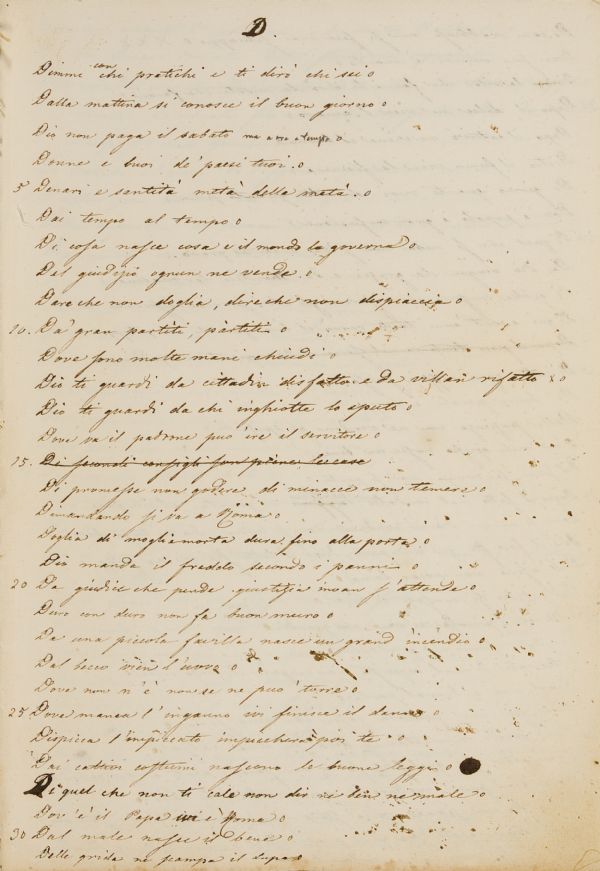 D.
Dimmi con chi pratichi e ti dirò chi sei o
Dalla mattina si conosce il buon giorno o
Dio non paga il sabato ma a ora e tempo o
Donne e buoi de' paesi tuoi. o
5 Denari e santità metà della metà. o
Dai tempo al tempo o
Di cosa nasce cosa e il mondo la governa o
Del giudizio ognun ne vende. o
Dare che non doglia, dire che non dispiaccia o
10. Da' gran partiti, partiti o
Dove sono molte mani chiudi o
Dio ti guardi da cittadin disfatto e da villan rifatto x o
Dio ti guardi da chi inghiotte lo sputo o
Dove va il padrone può ire il servitore o
15. Di secondi consigli son piene le case
Di promesse non godere, di minacce non temere o
Dimandando si va a Roma o
Doglia di moglie morta dura fino alla porta. o
Dio manda il freddo secondo i panni o
20 Da giudice che pende giustizia invan s'attende o
Duro con duro non fa buon muro o
Da una piccola favilla nasce un grand incendio o
Dal becco vien l'uovo o
Dove non n'è non se ne può torre o
25 Dove manca l'inganno ivi finisce il danno o
Dispicca l'impiccato impiccherà poi te o
Dai cattivi costumi nascono le buone leggi o
Di quel che non ti cale non dir nè ben nè male o
Dov'è il Papa ivi è Roma o
30 Dal male nasce il bene o
Delle grida ne scampa il lupo o